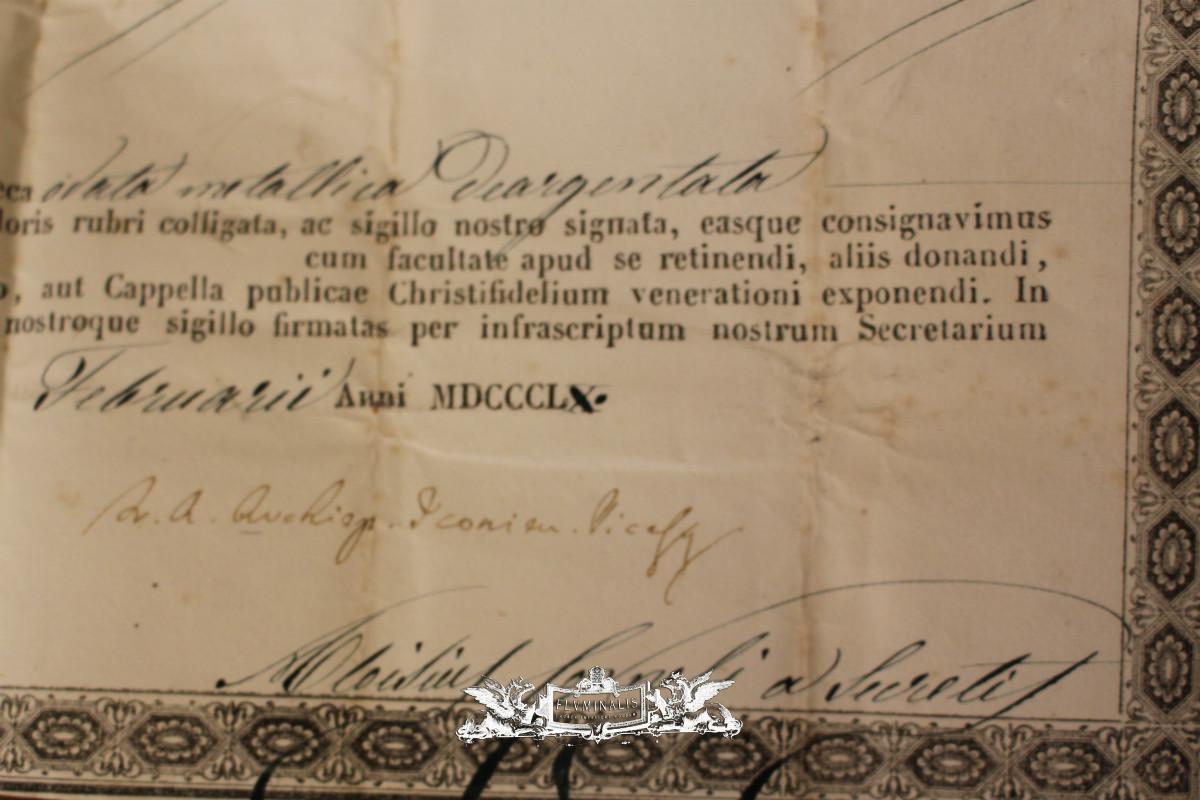 eca ovata metallica Deargentata
loris rubri colligata, ac sigillo nostro signata, easque consignavimus
cum facultate apud se retinendi, aliis donandi,
o, aut Cappella publicae Christifidelium venerationi exponendi. In
nostroque sigillo firmatas per infrascriptum nostrum Secretarium
Februarii Anni MDCCCLX.
A. Archiep. Iconien. Vicesg
Aloisius a Secretis
FLVMINALIS